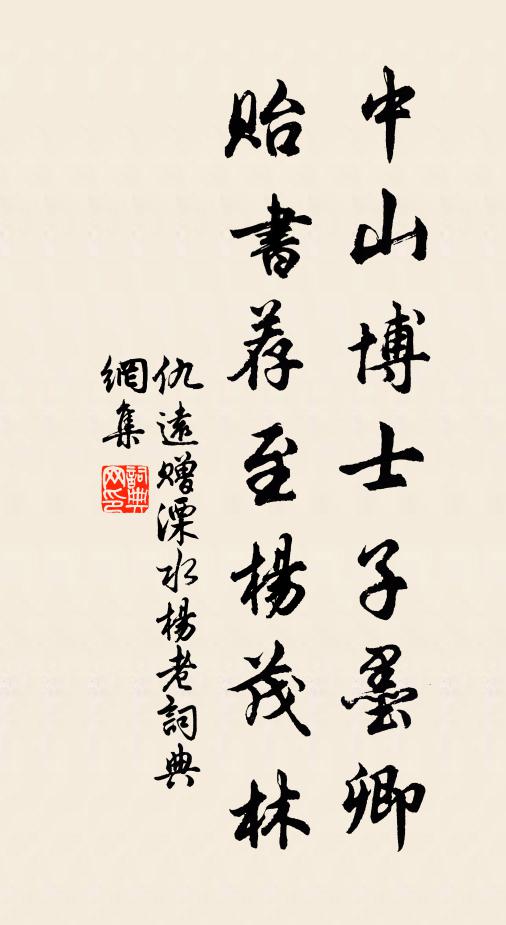 中山博士子墨卿
貽書荐至楊茂林
仇遠贈溧水楊老詞典
網集
詞典
网印